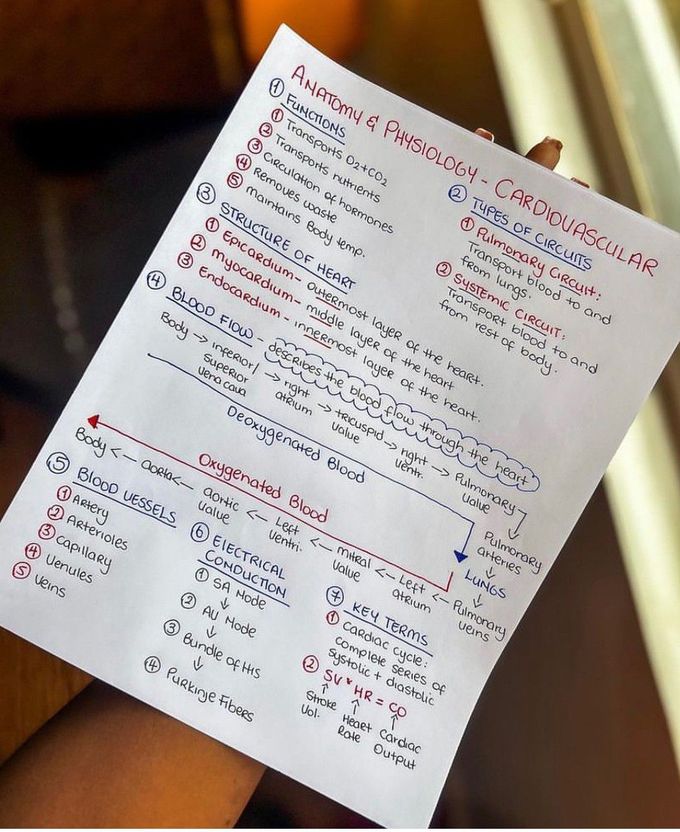 ANATOMY & PHYSIOLOGY - CARDIOVASCULAR
① FUNCTIONS
① Transports O2+CO2
② Transports nutrients
③ Circulation of hormones
④ Removes waste
⑤ Maintains Body temp.
② TYPES OF CIRCUITS
① Pulmonary Circuit:
Transport blood to and
from lungs.
② Systemic Circuit:
Transport blood to and
from rest of body.
③ STRUCTURE OF HEART
① Epicardium - outermost layer of the heart.
② myocardium - middle layer of the heart
③ Endocardium - innermost layer of the heart.
④ BLOOD FLOW - describes the blood flow through the heart
Body → inferior/ superior vena cava → right atrium → tricuspid valve → right ventr. → Pulmonary valve
Deoxygenated Blood
Pulmonary arteries
↓
LUNGS
↓
Pulmonary veins
Oxygenated Blood
Body <-- aorta <-- aortic valve <-- Left ventri. <-- mitral valve <-- Left atrium <-- Pulmonary veins
⑤ BLOOD VESSELS
① Artery
② Arterioles
③ Capillary
④ Venules
⑤ Veins
⑥ ELECTRICAL
CONDUCTION
① SA Node
↓
② AV Node
↓
③ Bundle of His
↓
④ Purkinje Fibers
⑦ KEY TERMS
① Cardiac cycle:
complete series of
systolic + diastolic
② SV * HR = CO
↑ ↑ ↑
Stroke Vol. Heart Rate Cardiac Output